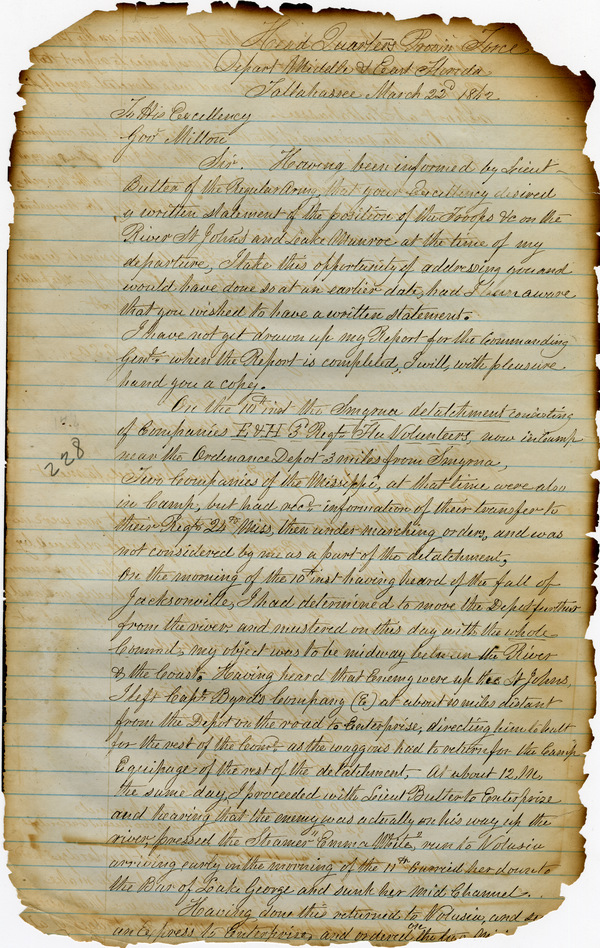 Head Quarters Provin Force
Depart Middle & East Florida
Tallahassee March 22d 1862
To His Excellency
Gov Milton
Sir. Having been informed by Lieut
Butler of the Regular Army, that your Excellency desired
a written statement of the position of the Troops &c on the
River St Johns and Lake Munroe at the time of my
departure, I take this opportunity of addressing you and
would have done so at an earlier date, had I been aware
that you wished to have a written statement.
I have not yet drawn up my Report for the Commanding
Genl. when the Report is completed, I will, with pleasure
hand you a copy.
On the 10th inst the Smyrna detatchment consisting
of Companies E & H 3d Regt. Fla Volunteers, now in Camp
near the Ordenance Depot 3 miles from Smyrna,
Two Companies of the Mississippi, at that time were also
in Camp, but had recd. information of their transfer to
their Regt. 24th Miss, then under marching orders, and was
not considered by me as a part of the detatchment,
On the morning of the 10th inst having heard of the fall of
Jacksonville, I had determined to move the Depot further
from the river, and mustered on this day with the whole
Command, my object was to be midway between the River
& the Coast. Having heard that Enemy were up the St Johns,
I left Capt. Byrds Company (E) at about 10 miles distant
from the Depot on the road to Enterprise, directing him to halt
for the rest of the Comd. as the waggons had to return for the Camp
Equipage of the rest of the detatchment, At about 12. M.
the same day, I proceeded with Lieut Butler to Enterprise
and hearing that the enemy was actually on his way up the
river, pressed the Steamer "Emma White", run to Volusia
arriving early in the morning of the 11th carried her down to
the Bar of Lake George and sunk her mid Channel.
Having done this returned to Volusia, and sent
an Express to Enterprise, and ordered the
228